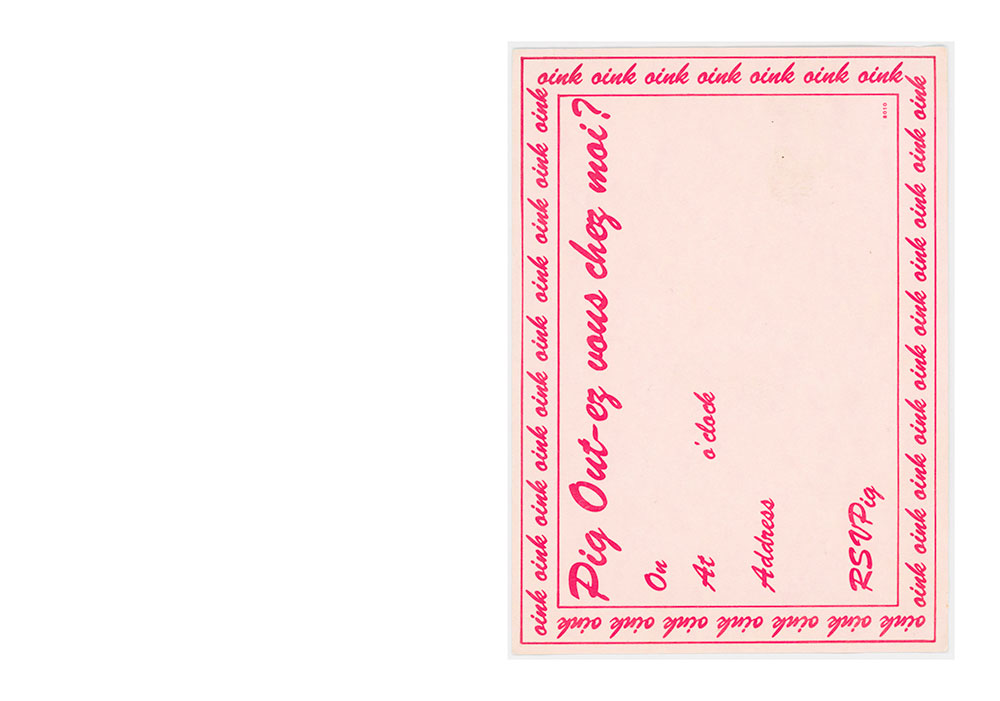 oink oink oink oink oink oink oink oink oink oink
oink oink oink oink oink oink oink
Pig Out-ez vous chez moi?
On
At o'clock
Address
RSVPig
oink oink oink oink oink oink oink
oink oink oink oink oink oink oink oink oink oink